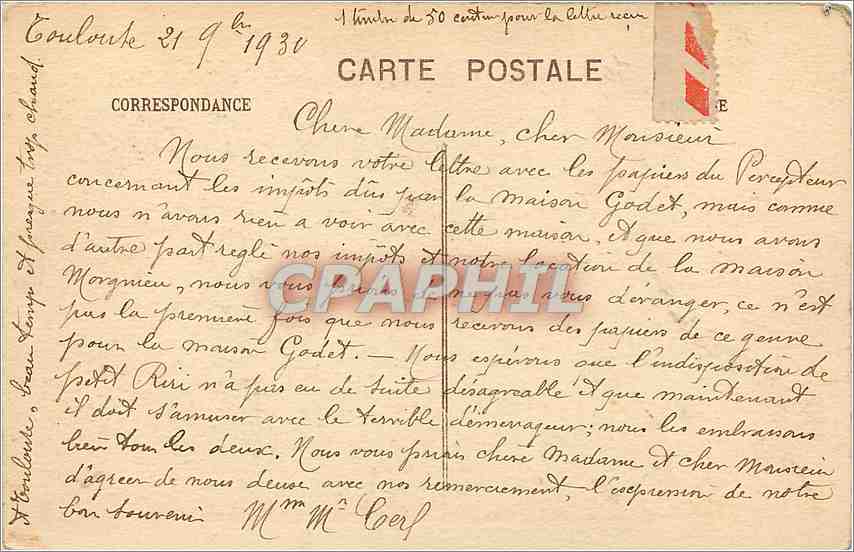 1 timbre de 50 centm pour la lettre reçue
Toulouse 21 9bre 1930
CARTE POSTALE
CORRESPONDANCE
Chere Madame, cher Monsieur
Nous recevons votre lettre avec les papiers du Percepteur
concernant les impôts dûs par la maison Godet, mais comme
nous n'avons rien a voir avec cette maison, et que nous avons
d'autre part reglé nos impôts et notre location de la maison
Morgnieu, nous vous prions de ne pas vous déranger, ce n'est
pas la première fois que nous recevons des papiers de ce genre
pour la maison Godet. — Nous espérons que l'indisposition de
petit Riri n'a pas eu de suite désagréable et que maintenant
il doit s'amuser avec le terrible démenageur; nous les embrassons
bien tous les deux. Nous vous prions chère Madame et cher Monsieur
d'agreer de nous deux avec nos remerciement, l'expression de notre
bon souvenir
A Toulouse, beau temps et presque trop chaud
CPAPHIL